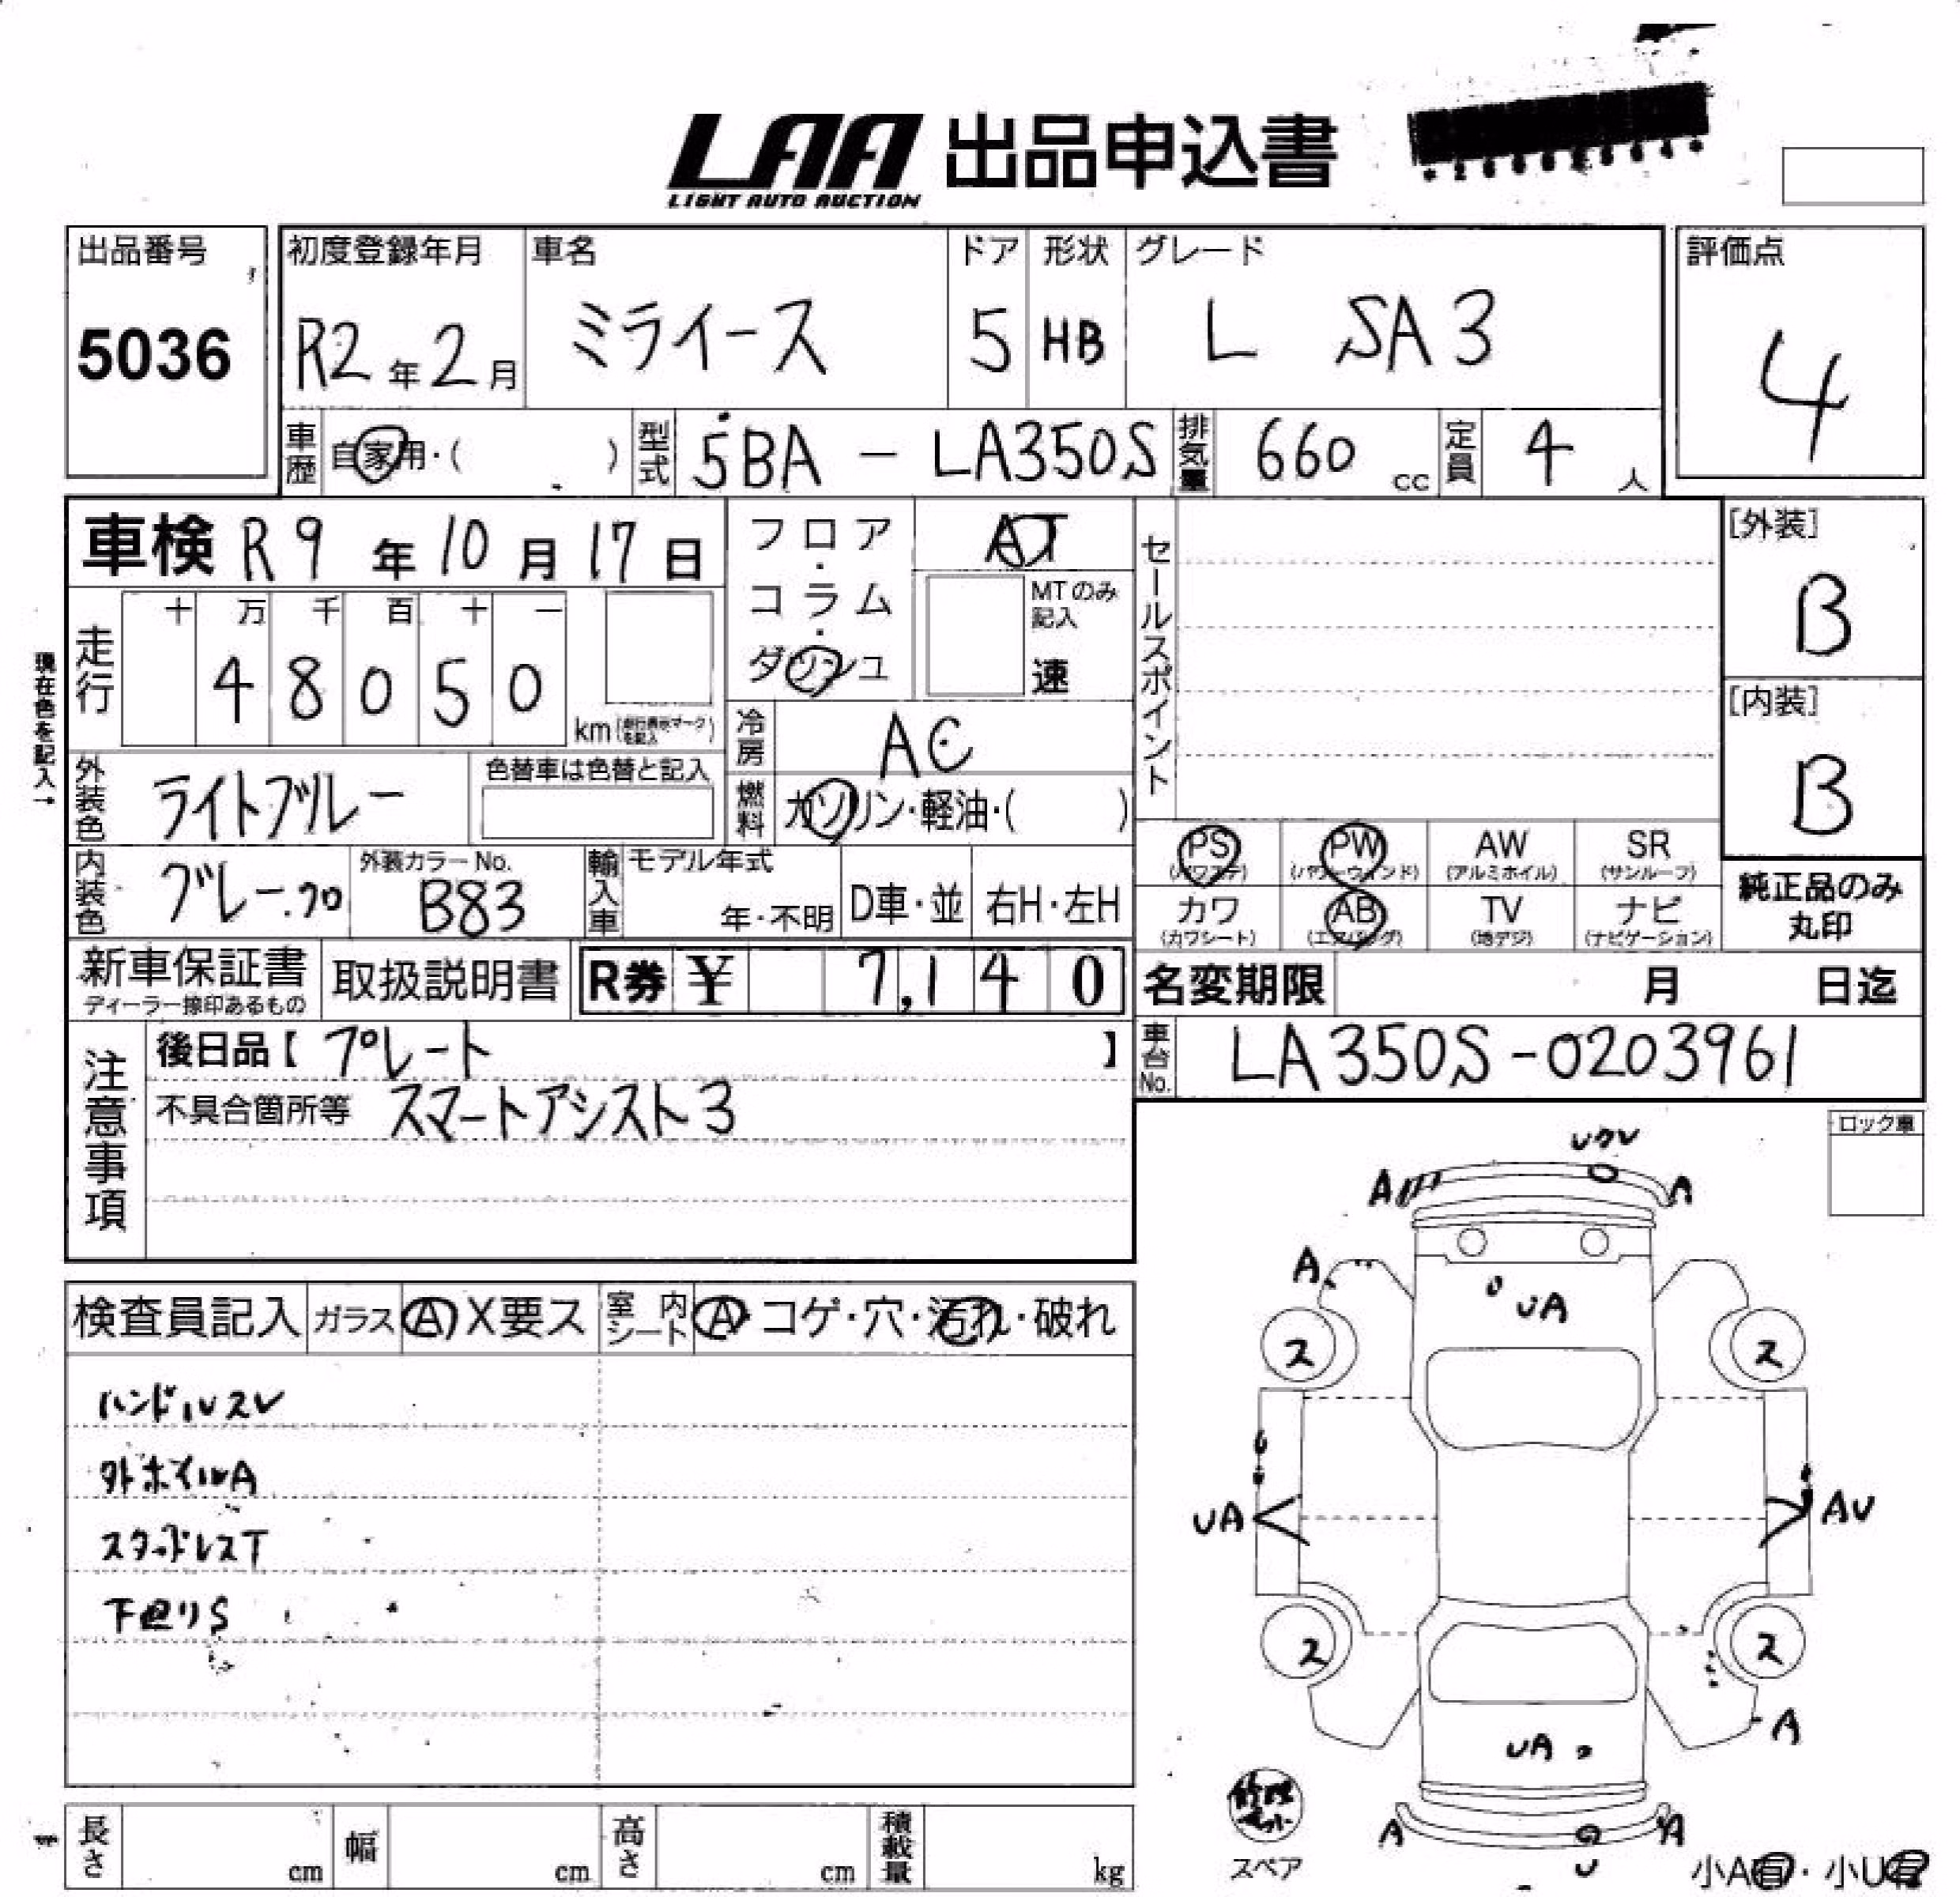 LAA 出品申込書
LIGHT AUTO AUCTION
出品番号
5036
初度登録年月
R2年2月
車名
ミライース
ドア
5
形状
HB
グレード
L SA3
評価点
4
車歴
自家用・( )
型式
5BA - LA350S
排気量
660 cc
定員
4 人
車検 R9年10月17日
フロア・コラム・ダッシュ
AT
MTのみ記入
速
セールスポイント
[外装]
B
[内装]
B
現在色を記入→
走行
十 万 千 百 十 一
4 8 0 5 0
km (走行表示マークを記入)
冷房
AC
外装色
ライトブルー
色替車は色替と記入
燃料
ガソリン・軽油・( )
内装色
グレー.クロ
外装カラーNo.
B83
輸入車
モデル年式
年・不明
D車・並
右H・左H
PS (パワステ)
PW (パワーウィンド)
AW (アルミホイル)
SR (サンルーフ)
カワ (カワシート)
AB (エアバッグ)
TV (地デジ)
ナビ (ナビゲーション)
純正品のみ丸印
新車保証書
ディーラー捺印あるもの
取扱説明書
R券 ¥ 7,140
名変期限 月 日迄
注意事項
後日品【 プレート 】
不具合箇所等 スマートアシスト3
車台No.
LA350S-0203961
ロック車
検査員記入
ガラス A X要ス
室内シート A・コゲ・穴・汚れ・破れ
ハンドルスレ
外ホイルA
スタッドレスT
下回りS
A A
A
UA
ス ス
UA AU
ス ス
UA
A
A A
U
修理キット
スペア
小A有・小U有
長さ cm
幅 cm
高さ cm
積載量 kg